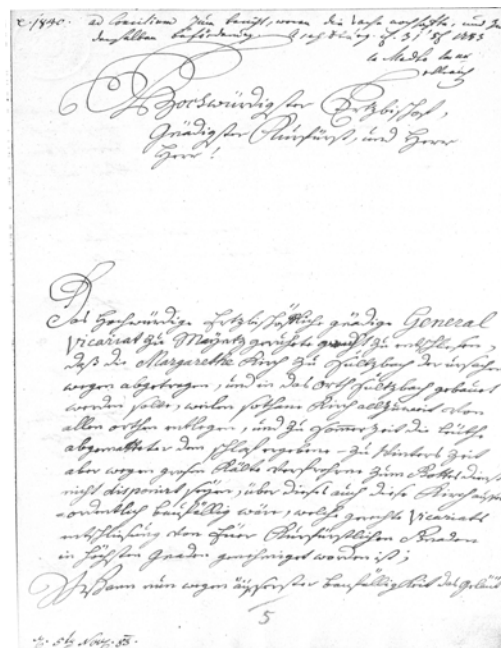 ad Consilium zum bericht, woran die sache noch hafte, und zu
derselben beförderung.
Hochwürdigster Ertzbischof,
Gnädigster Kurfürst, und Herr
Herr!
Das Hochwürdige Ertzbischöfliche gnädige General
Vicariat zu Mayntz geruhete zu entschliesen,
daß die Margarethe Kirch zu Sultzbach der ursachen
wegen abgetragen, und in das Orth Sultzbach gebauet
werden solle, weilen sothane Kirch allzuweit von
allen orthen entlegen, und zu Sommerzeit die Leuthe
abgematteter dem schlaf ergeben – zu Winters Zeit
aber wegen grosen Kälte verfrohrne zum Gottesdienst
nicht disponirt seyen, über dieses auch diese Kirch ausser
ordentlich baufällig wäre, welche gerechte Vicariats
entschliesung von Euer Kurfürstlichen Gnaden
in höchsten Gnaden genehmiget worden ist;
Wann nun wegen äusserster baufälligkeit das Geläut
5